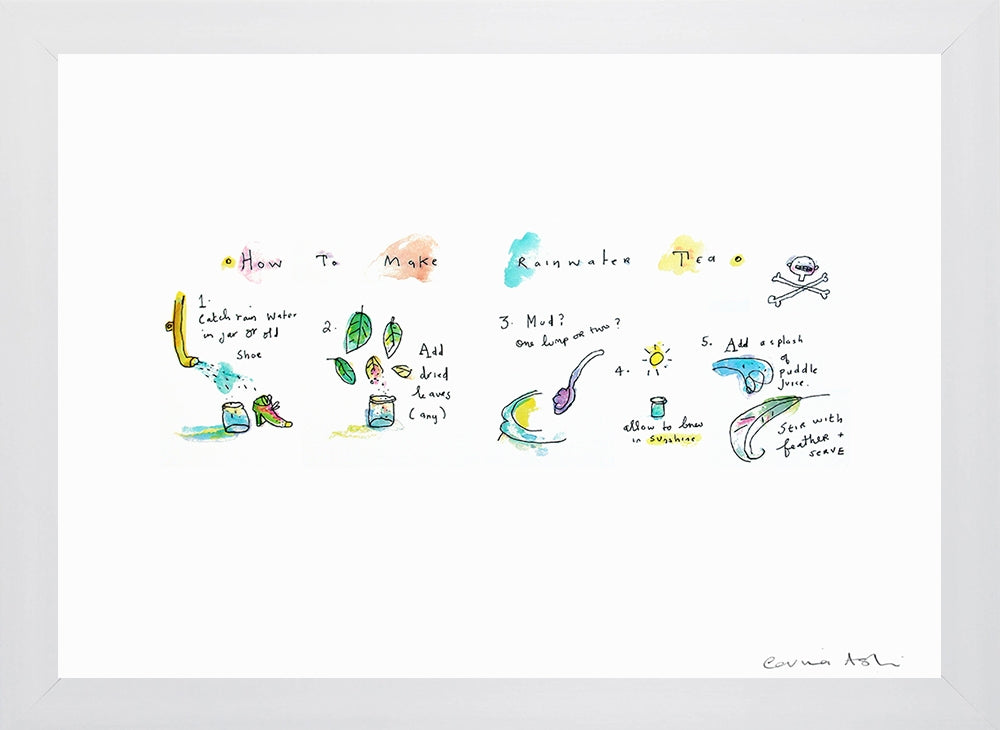 How To Make Rainwater Tea
1.
Catch rain water
in jar or old
shoe
2.
Add
dried
leaves
(any)
3. Mud?
one lump or two?
4.
allow to brew
in sunshine
5. Add a splash
of
puddle
juice.
Stir with
feather +
serve